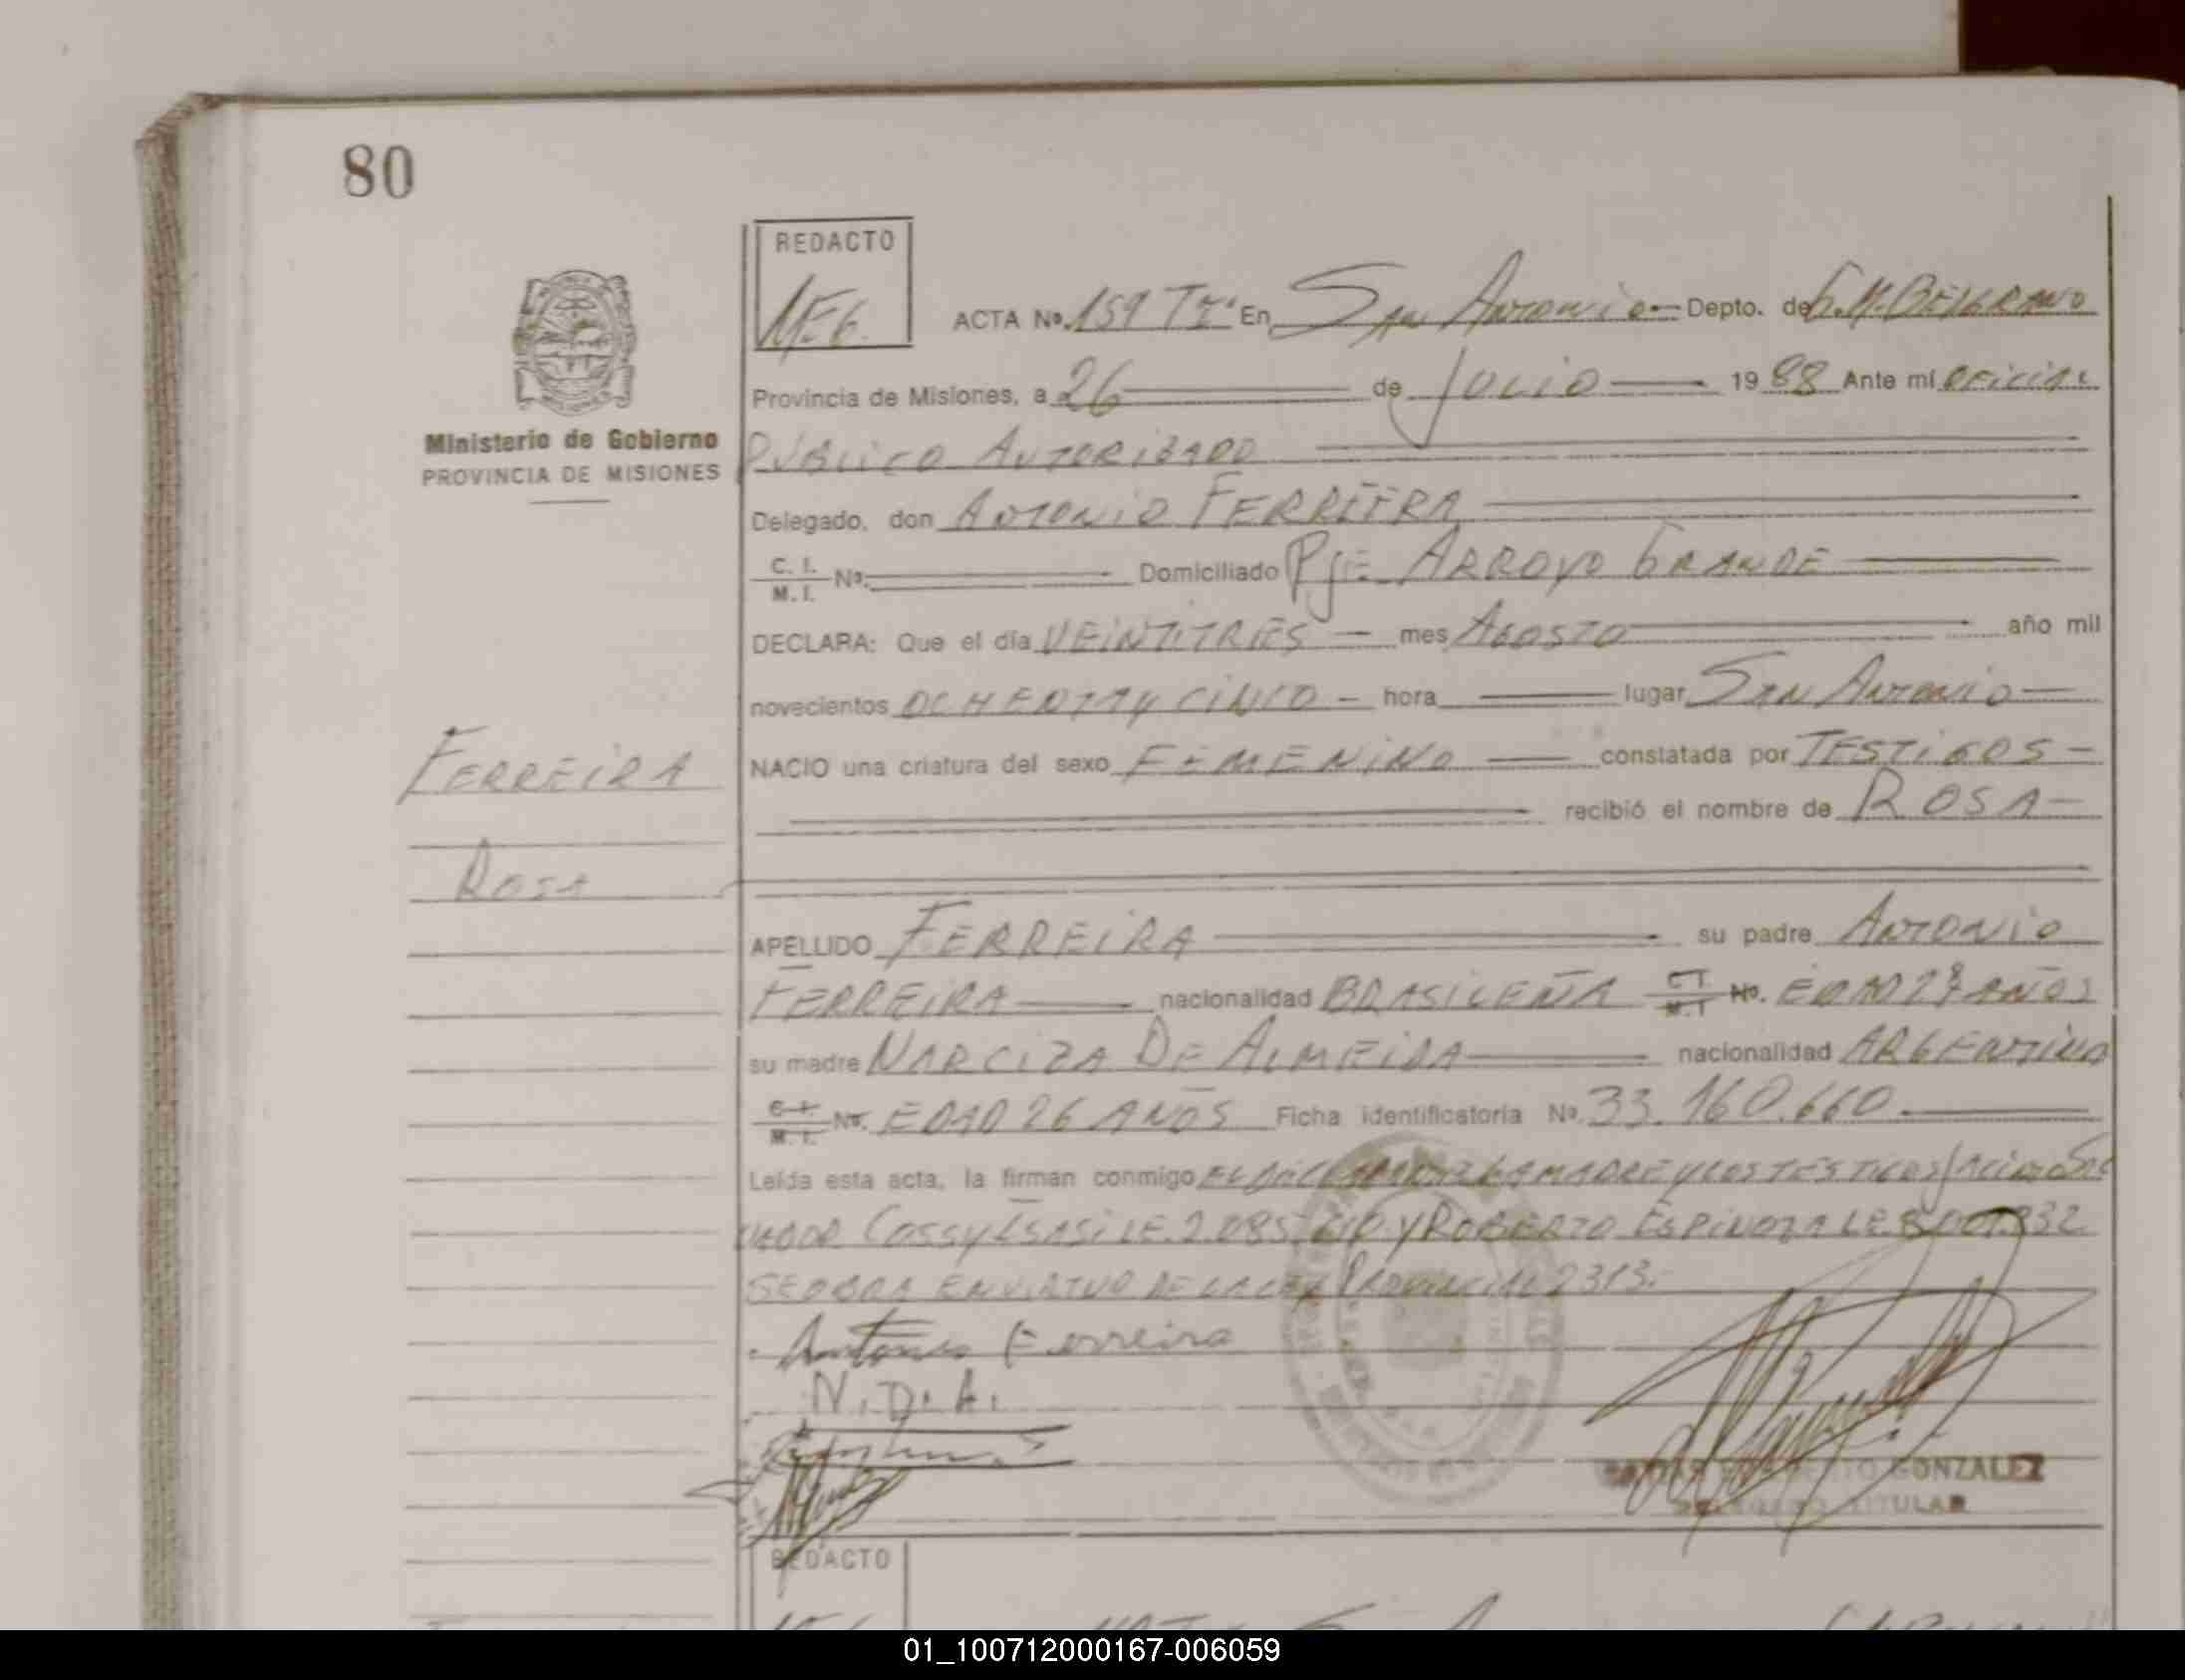 80
REDACTO
ACTA Nº 159 TI En San Antonio Depto. de G.M. BELGRANO
Provincia de Misiones, a 26 de Julio 1988 Ante mí OFICIAL
Ministerio de Gobierno
PROVINCIA DE MISIONES
PUBLICO AUTORIZADO
Delegado, don ANTONIO FERREIRA
C. I.
M. I. Nº Domiciliado Pje ARROYO GRANDE
DECLARA: Que el día VEINTITRES mes AGOSTO año mil
novecientos OCHENTA y CINCO hora lugar SAN ANTONIO
FERREIRA
NACIO una criatura del sexo FEMENINO constatada por TESTIGOS
recibió el nombre de ROSA
ROSA
APELLIDO FERREIRA su padre ANTONIO
FERREIRA nacionalidad BRASILEÑA C I M.I Nº. EDAD AÑOS
su madre NARCIZA DE ALMEIDA nacionalidad ARGENTINA
C.I. M. I. Nº. EDAD 26 AÑOS Ficha identificatoria Nº 33.160.660
Leída esta acta, la firman conmigo EL LA MADRE Y LOS TESTIGOS
LE. 2.085. Y ROBERTO ESPINOZA LE.
SE OBRA EN VIRTUD DE LA LEY PROVINCIAL 2313.
Antonio Ferreira
N. D. A.
GONZALEZ
TITULAR
REDACTO
01_100712000167-006059